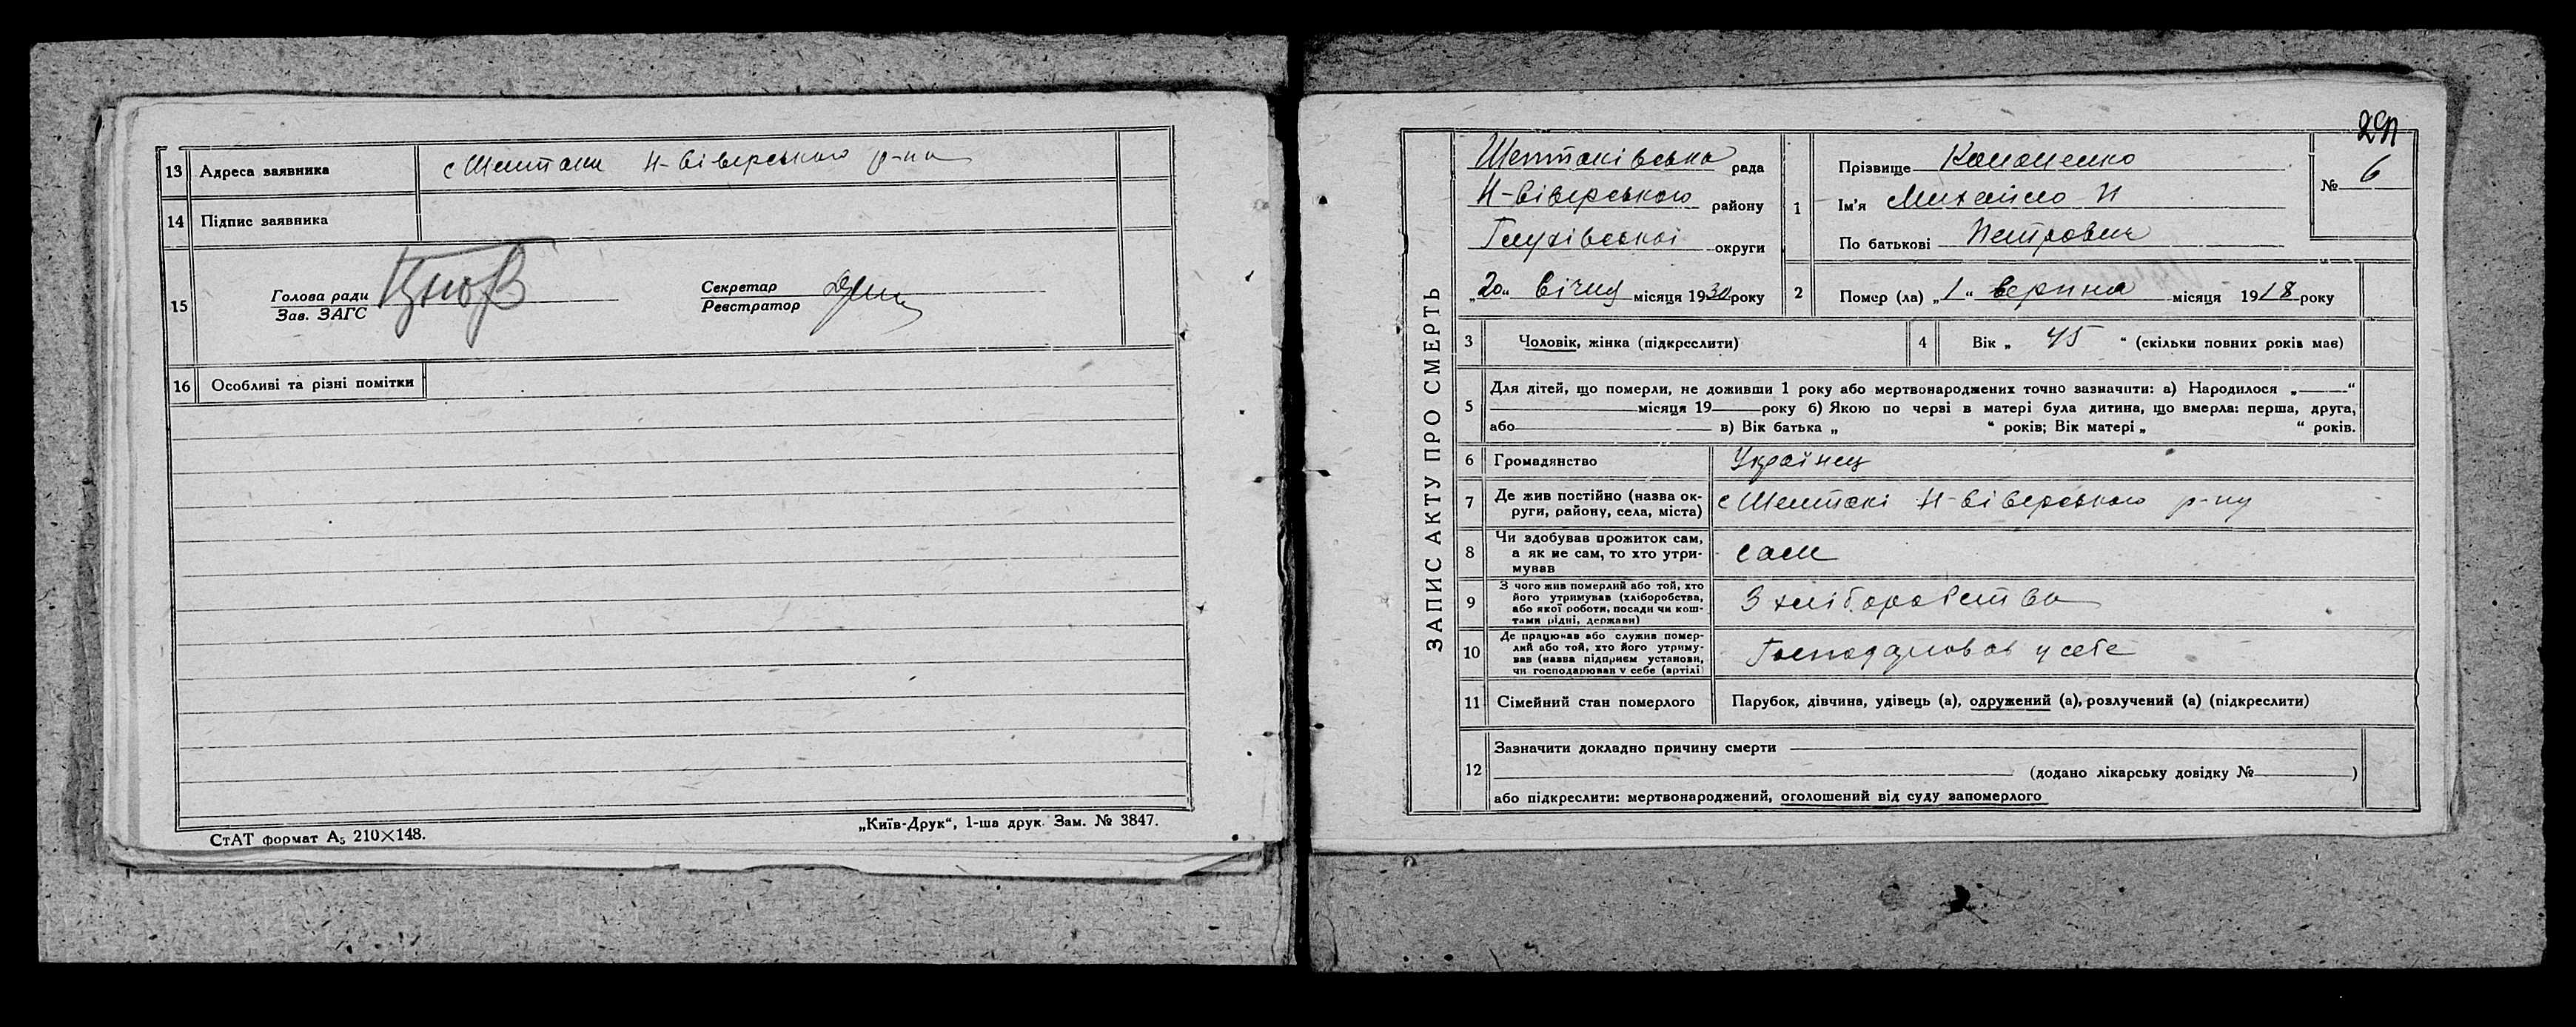 13 Адреса заявника с Шептаки Н-Сіверського р-на
14 Підпис заявника
15 Голова ради
Зав. ЗАГС
Секретар
Реєстратор
16 Особливі та різні помітки
СтАТ формат А5 210×148.
„Київ-Друк“, 1-ша друк. Зам. № 3847.
ЗАПИС АКТУ ПРО СМЕРТЬ
Шептаківська рада
Н-Сіверського району
Глухівської округи
„20“ січня місяця 1930 року
№ 6
1 Прізвище Кононенко
Ім'я Михайло
По батькові Петрович
2 Помер (ла) „1“ серпня місяця 1918 року
3 Чоловік, жінка (підкреслити)
4 Вік „ 45 “ (скільки повних років мав)
5 Для дітей, що померли, не доживши 1 року або мертвонароджених точно зазначити: а) Народилося „——“
місяця 19——року б) Якою по черзі в матері була дитина, що вмерла: перша, друга,
або—— в) Вік батька „ “ років; Вік матері „ “ років.
6 Громадянство Українец
7 Де жив постійно (назва ок-
руги, району, села, міста) с Шептакі Н-Сіверського р-ну
8 Чи здобував прожиток сам,
а як не сам, то хто утри-
мував сам
9 З чого жив померлий або той, хто
його утримував (хліборобства,
або якої роботи, посади чи кош-
тами рідні, держави) З хліборобства
10 Де працював або служив помер-
лий або той, хто його утриму-
вав (назва підприєм установи,
чи господарював у себе (артілі) Господарював у себе
11 Сімейний стан померлого Парубок, дівчина, удівець (а), одружений (а), розлучений (а) (підкреслити)
12 Зазначити докладно причину смерти
(додано лікарську довідку №——)
або підкреслити: мертвонароджений, оголошений від суду запомерлого